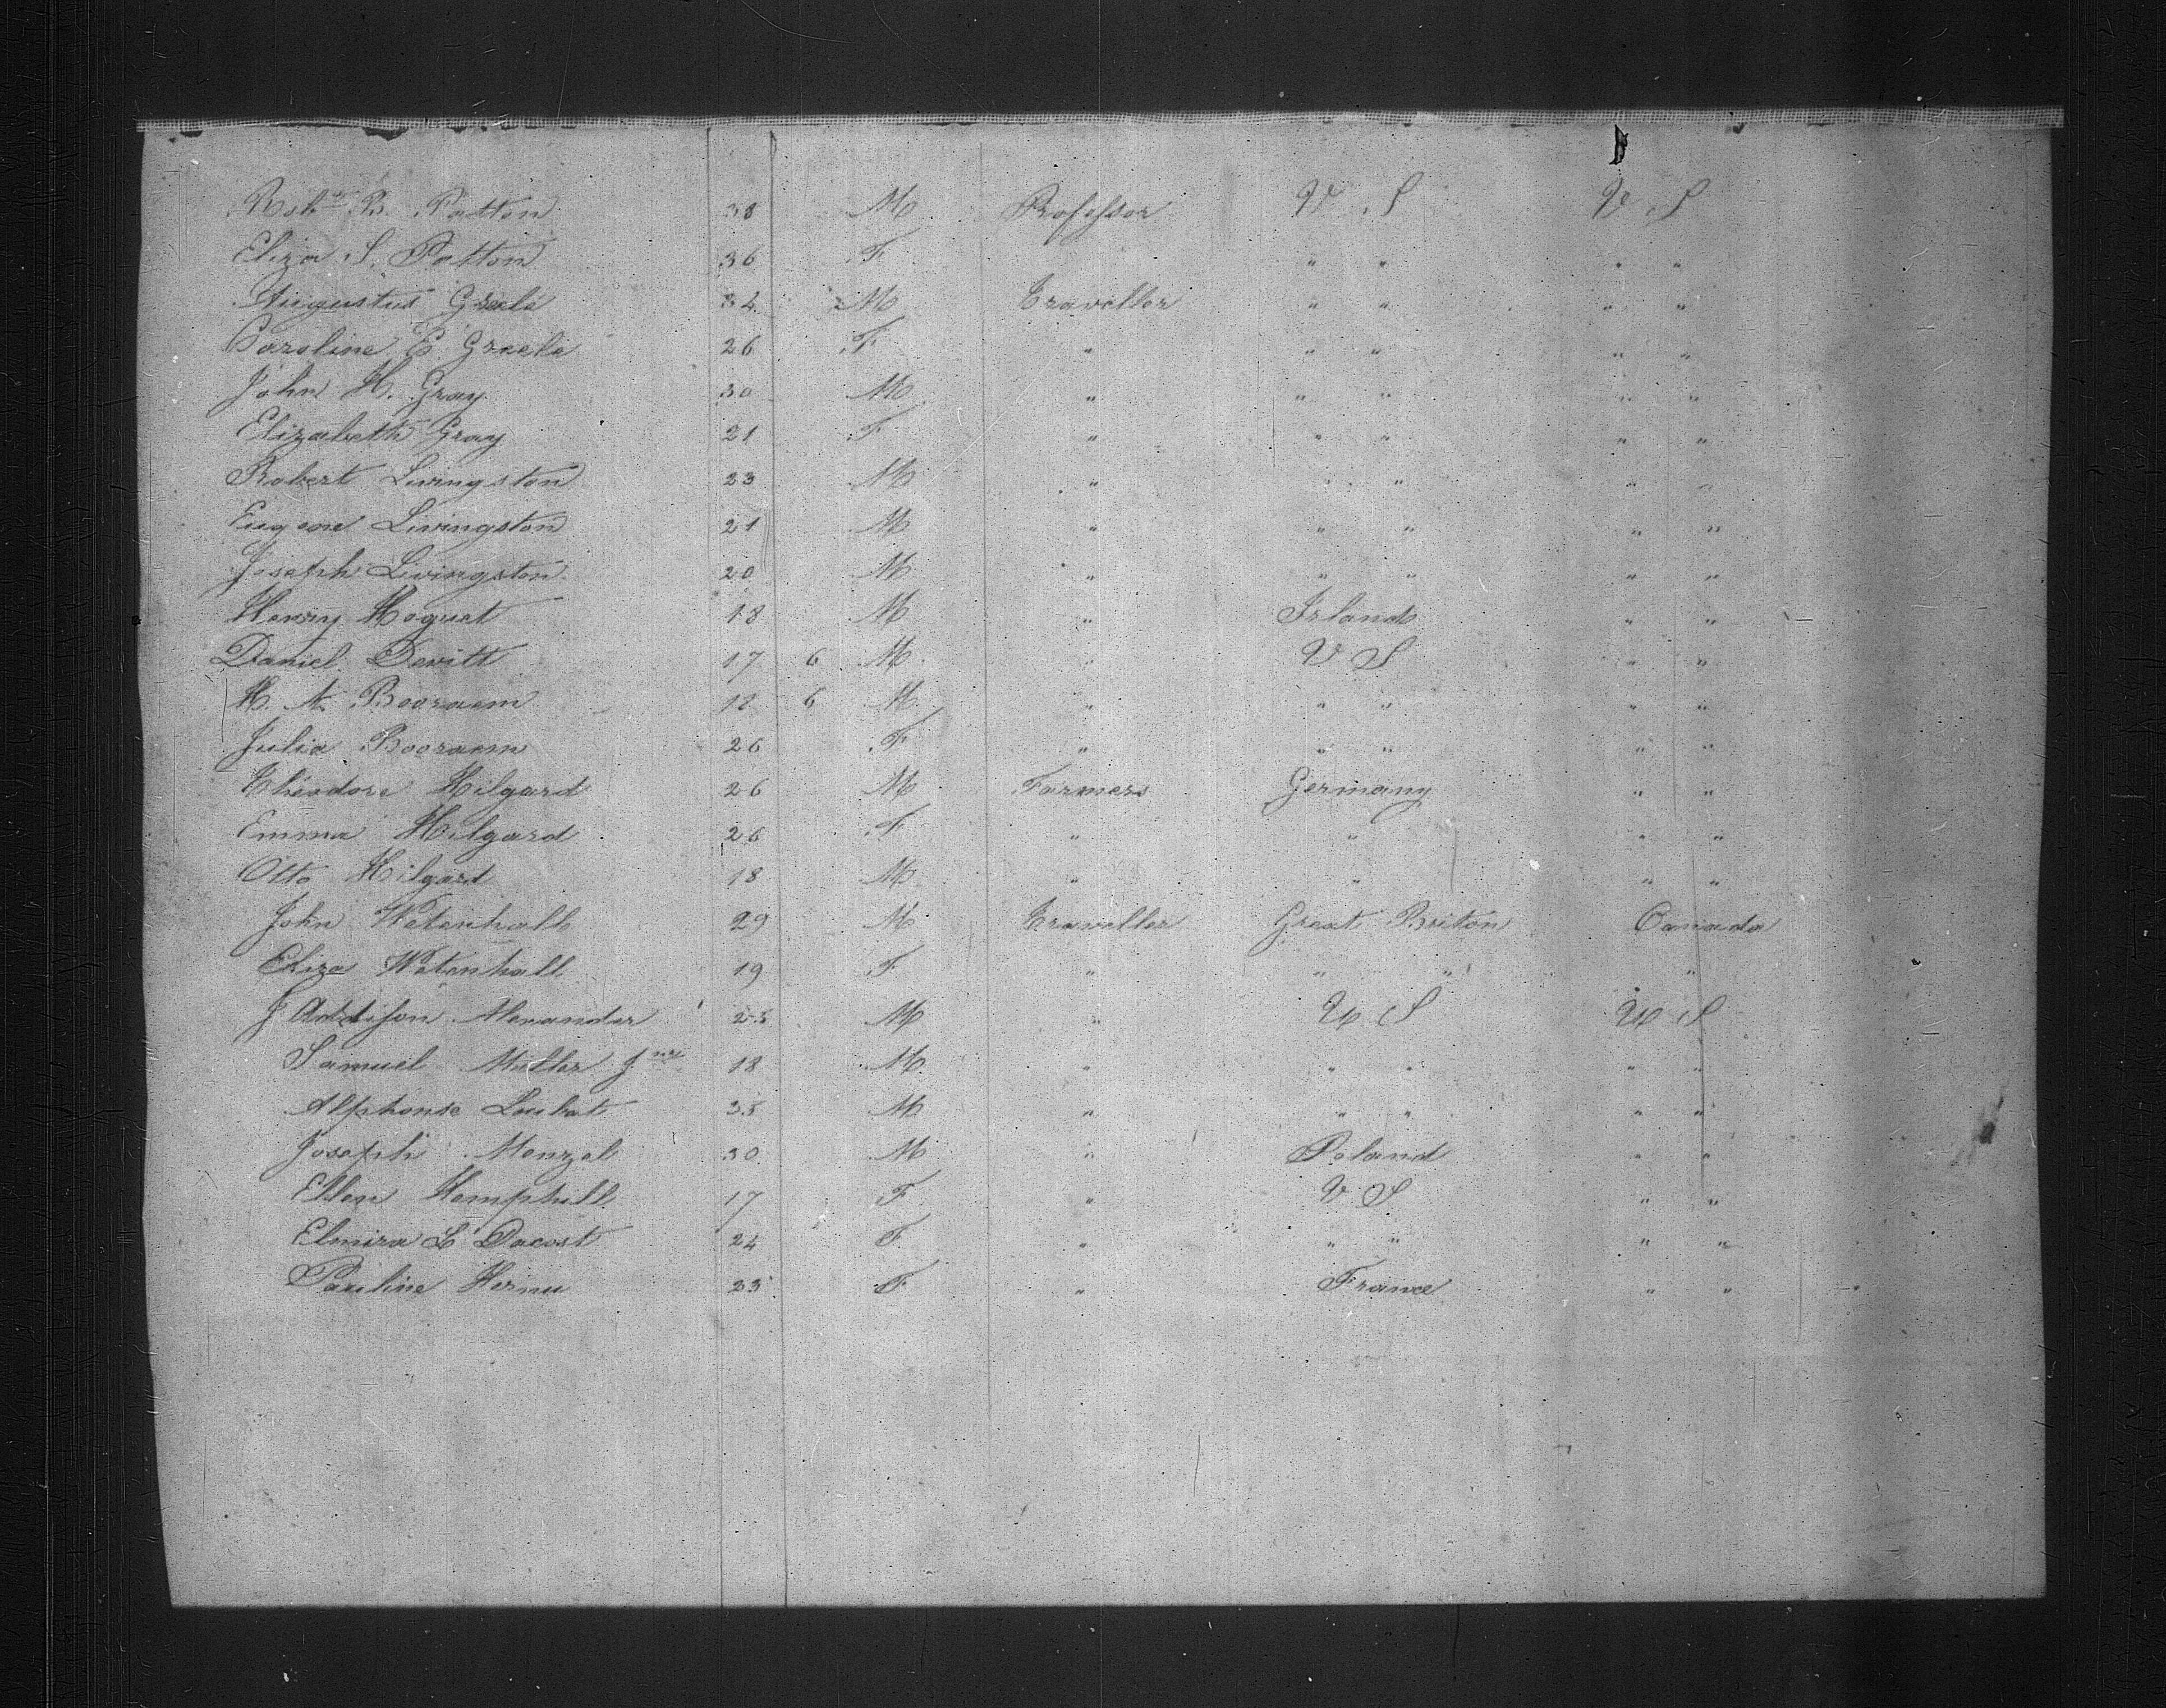 Robt B. Patton 38 M Professor U S U S
Eliza S. Patton 36 F " " " "
Augustus Greele 34 M Traveller " " " "
Caroline E Greele 26 F " " " " "
John H. Gray 30 M " " " " "
Elizabeth Gray 21 F " " " " "
Robert Livingston 23 M " " " " "
Eugene Livingston 21 M " " " " "
Joseph Livingston 20 M " " " " "
Henry Hoguet 18 M " Irland " "
Daniel Devitt 17 6 M " U S " "
H. A. Booraem 18 6 M " " " " "
Julia Booraem 26 F " " " " "
Théodore Hilgard 26 M Farmers Germany " "
Emma Hilgard 26 F " " " "
Otto Hilgard 18 M " " " "
John Wetenhall 29 M Traveller Great Briton Canada
Eliza Wetenhall 19 F " " " "
J Addison Alexander 25 M " U S U S
Samuel Miller Jnr 18 M " " " " "
Alphonse Loubat 35 M " " " " "
Joseph Menzel 30 M " Poland " "
Ellen Hemphill 17 F " U S " "
Elmira L Dacost 24 F " " " " "
Pauline Hernu 23 F " France " "